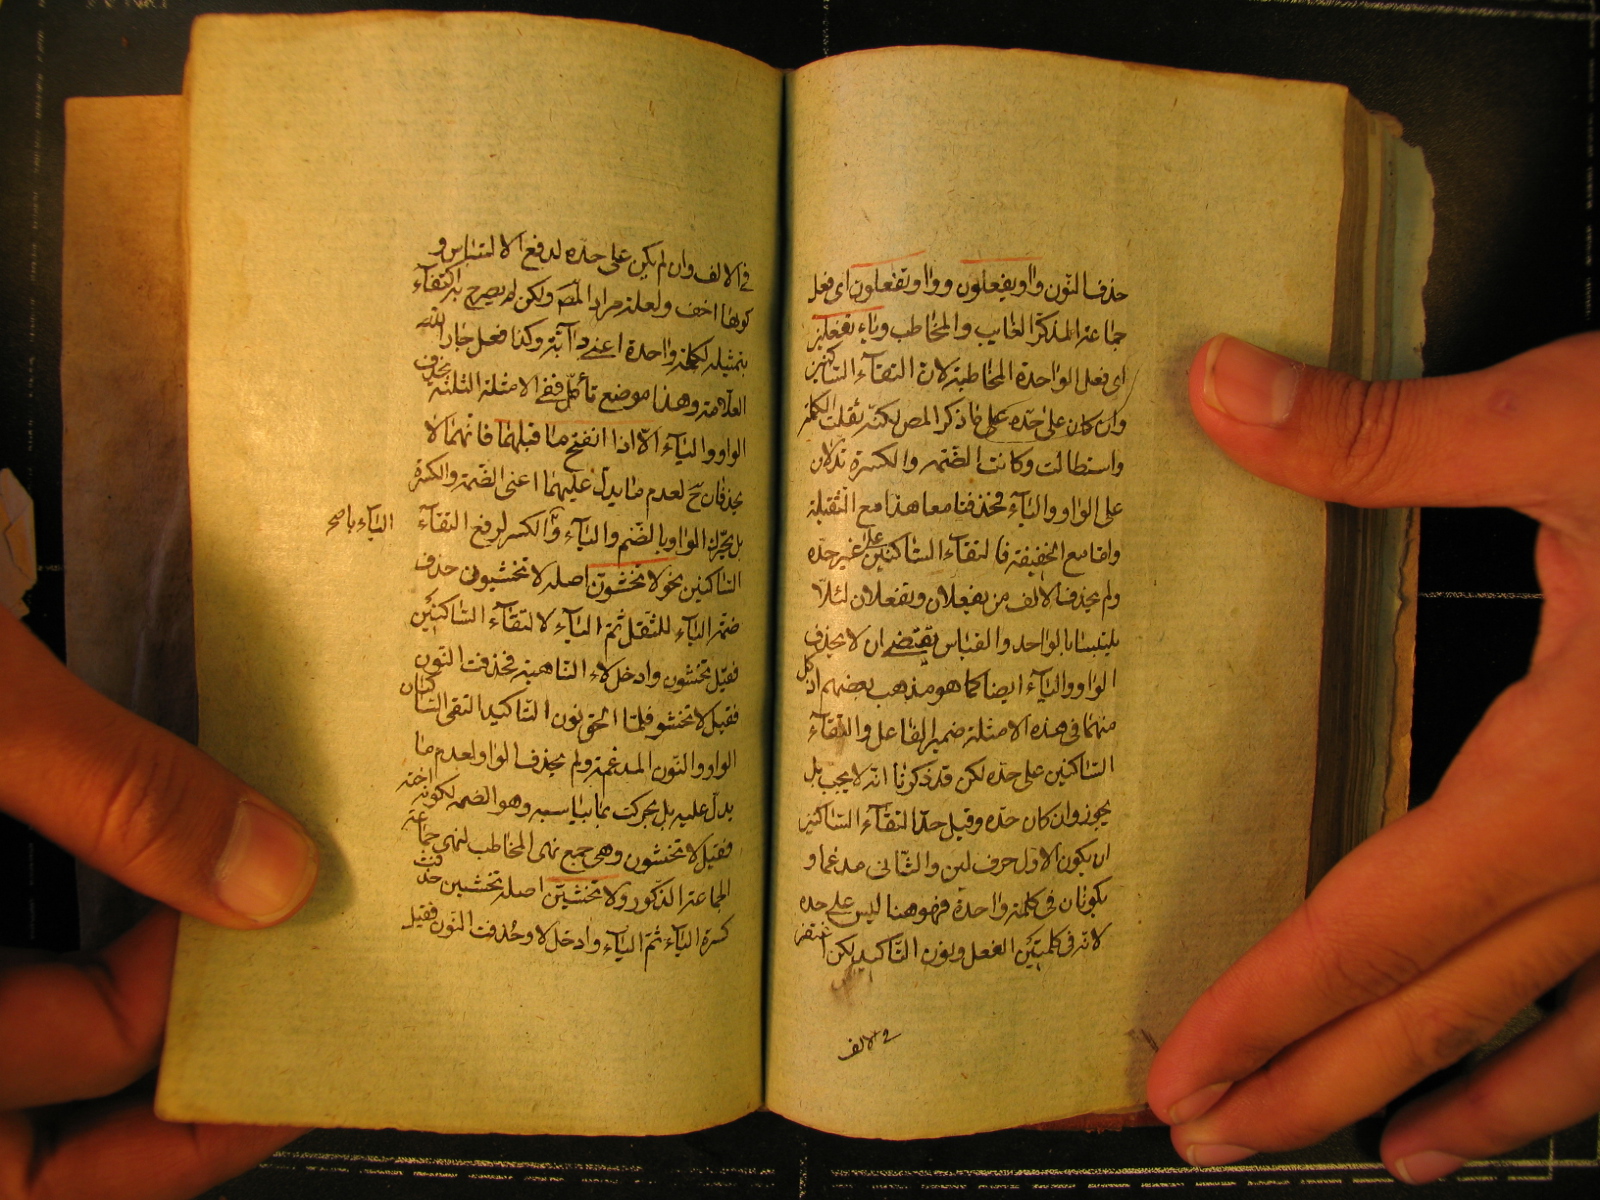 حذف النون واو يفعلون وواو تفعلون اى فعل
جماعة المذكر الغايب والمخاطب وياء تفعلين
اى فعل الواحدة المخاطبة لان التقآء الساكنين
وان كان على حدّه على ما ذكر المص لكنه ثقلت الكلمة
واستطالت وكانت الضمة والكسرة تدلان
على الواو واليآء فحذفتا معا هذا مع الثقيلة
وامّا مع الخفيفة فالتقآء الساكنين على غير حدّه
ولم يحذف الالف من يفعلان وتفعلان لئلّا
يلتبسا بالواحد والقياس يقتضى ان لا يحذف
الواو واليآء ايضا كما هو مذهب بعضهم اذ كل
منهما فى هذه الامثلة ضمير الفاعل والتقآء
الساكنين على حدّه لكن قد ذكرنا انه لا يجب بل
يجوز وان كان حدّه وقيل حدّ التقآء الساكنين
ان يكون الاول حرف لين والثّانى مدغما و
يكونان فى كلمة واحدة فهو هنا ليس على حده
لانه فى كلمتين الفعل ونون التّاكيد لكن اغتفر
فى الالف
فى الالف وان لم يكن على حدّه لدفع الالتباس و
كونها اخف ولعله مراد المص ولكن لم يصرح به اكتفآء
بتمثيله لكلمة واحدة اعنى دآبّة وكذا فعل جار الله
العلّامة وهذا موضع تأمّل ففى الامثلة الثلثة يحذف
الواو واليآء الّا اذا انفتح ما قبلهما فانهما لا
يحذفان ح لعدم ما يدلّ عليهما اعنى الضّمة والكسرة
بل يحرك الواو بالضّم واليآء بالكسر لرفع التقآء
اليآء باصح
السّاكنين نحو لا تخشونّ اصله لا تخشيون حذف
ضمة اليآء للثقل ثمّ اليآء لالتقآء السّاكنين
فقيل تخشون وادخل لاء النّاهية فحذفت النّون
فقيل لا تخشو فلمّا الحق نون التّاكيد التقى السّاكنان
الواو والنّون المدغمة ولم يحذف الواو لعدم ما
يدلّ عليه بل يحركت بما يناسبه وهو الضمه لكونه اخته
فقيل لا تخشونّ وهى جمع نهى المخاطب لنهى جماعة
الجماعة الذّكور ولا تخشينّ اصله تخشيين حذفت
كسرة اليآء ثمّ اليآء وادخل لا وحُذفت النّون فقيل